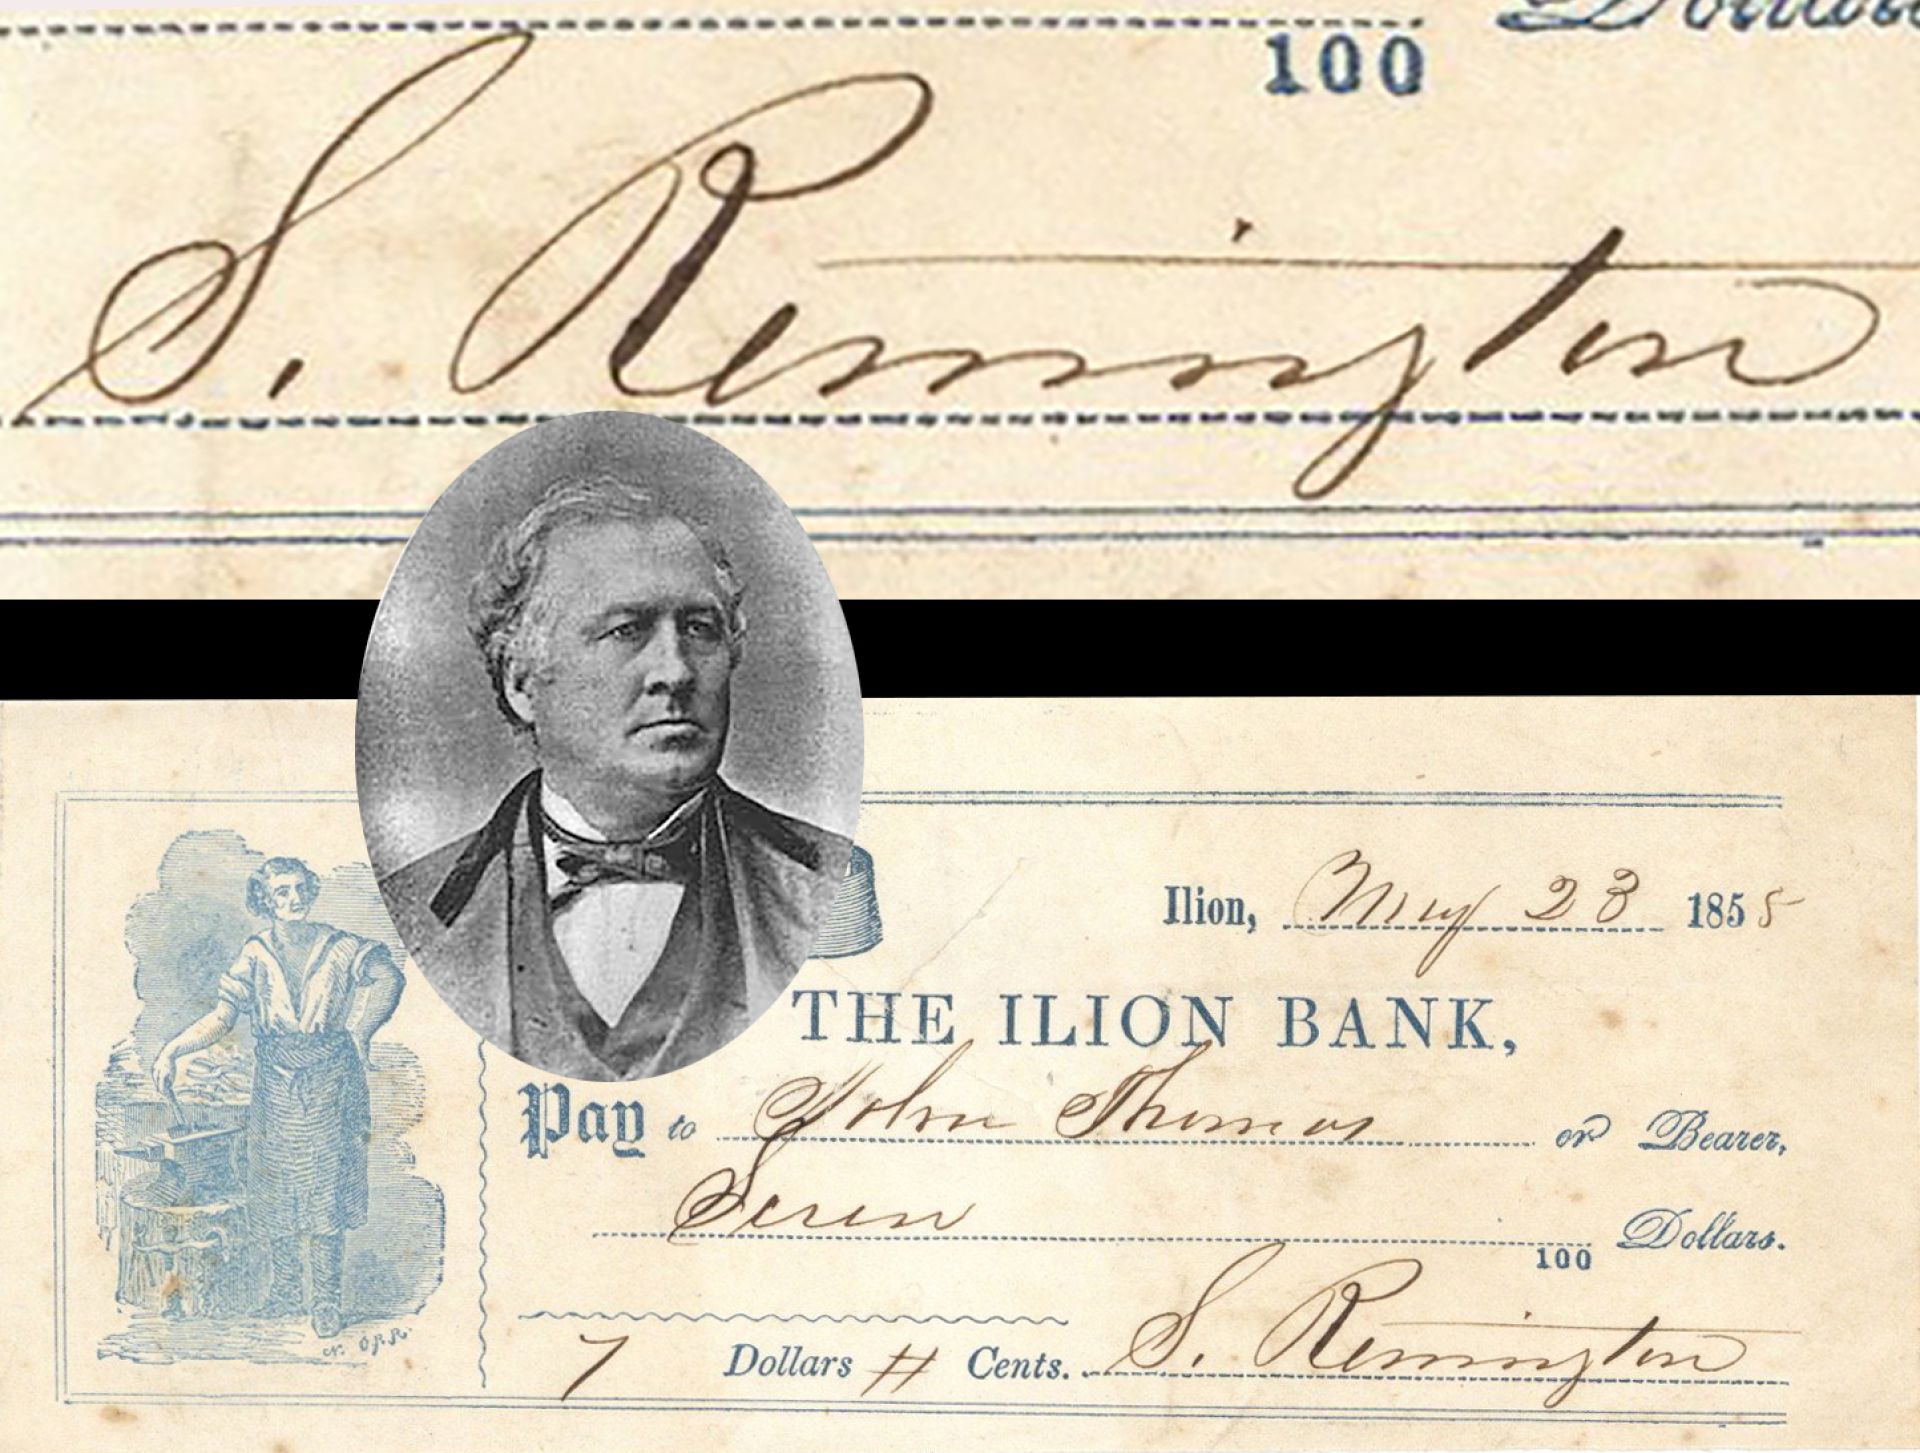 Dollars
100
S. Remington
Ilion, May 23 1855
THE ILION BANK,
Pay to John Thomas or Bearer,
Seven
100 Dollars.
7 Dollars # Cents. S. Remington
N. Orr.